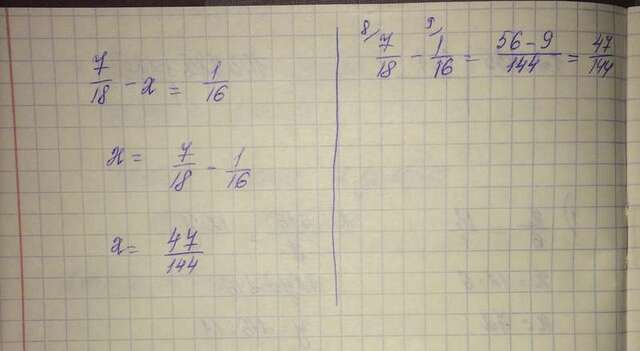 7/18 - x = 1/16
x = 7/18 - 1/16
x = 47/144
8, 9,
7/18 - 1/16 = 56-9/144 = 47/144